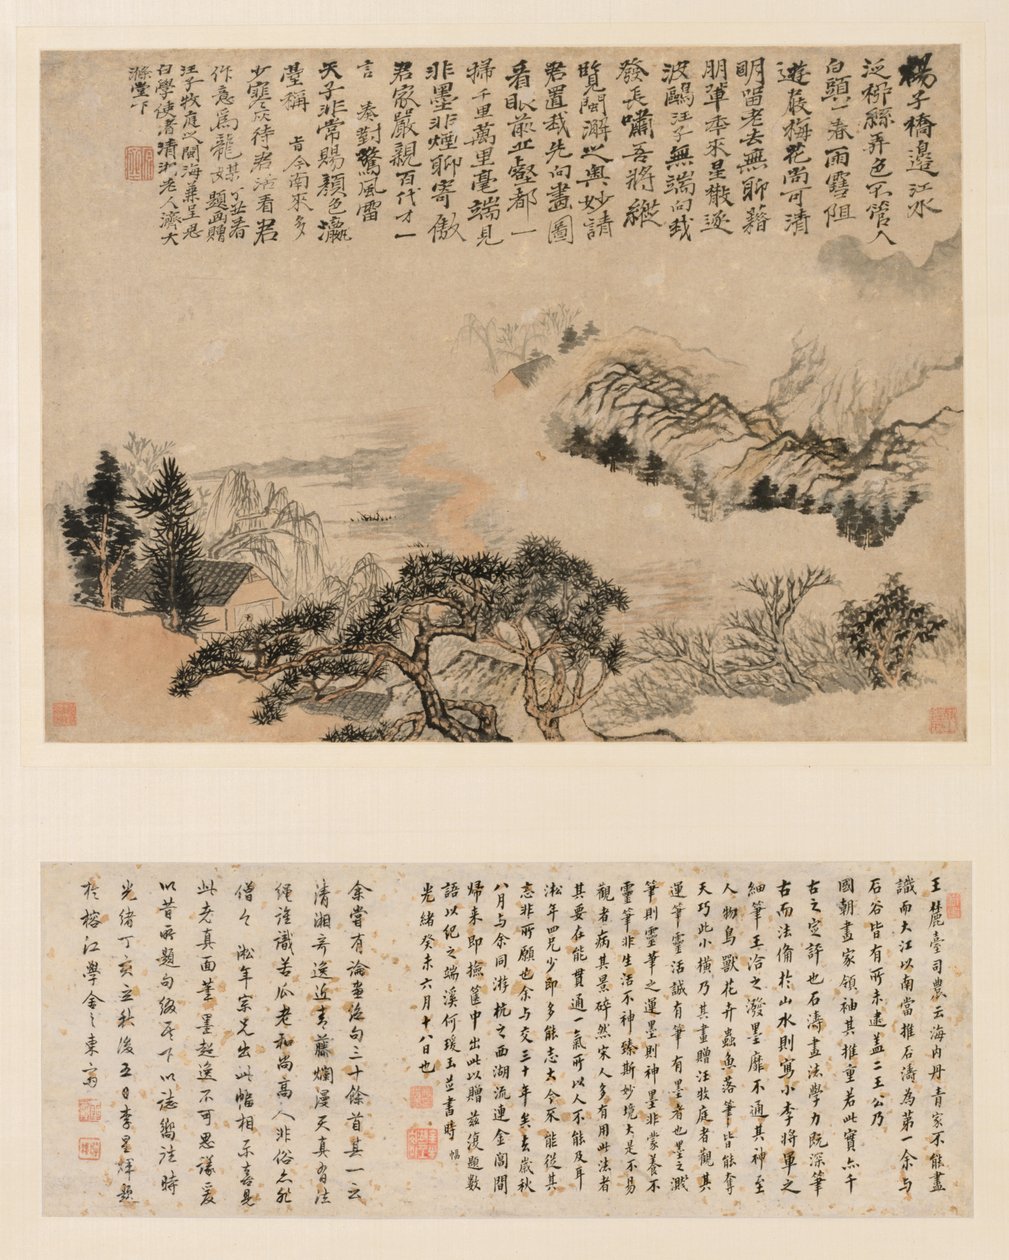 楊子橋邊江水
泛柳絲弄色不管人
白頭一春雨雪阻
遊展梅花尚可清
明留老去無聊藉
朋輩本來星散逐
波鷗汪子無端向我
發長嘯吾將縱
覽閩澥之奧妙請
君置我先向畫圖
看眼前丘壑都一
掃千里萬里毫端見
非墨非煙聊寄傲
君家嚴親百代才一
言奏對驚風雷
天子非常賜顏色瀛
臺稱旨今南來多
少寒灰待君活看君
作意為龍媒
汪子牧庭之閩海兼呈思
白學使者清湘老人濟大
滌堂下
王麓臺司農云海內丹青家不能盡
識而大江以南當推石濤為第一余與
石谷皆有所未逮蓋二王公乃
國朝畫家領袖其推重若此實亦千
古之定評也石濤畫法學力既深筆
古而法備於山水則寫小李將軍之
細筆王洽之潑墨靡不通其神至
人物鳥獸花卉蟲魚落筆皆能奪
天巧此小橫乃其畫贈汪牧庭者觀其
運筆靈活誠有筆有墨者也墨之濺
筆則靈筆之運墨則神墨非蒙養不
靈筆非生活不神臻斯妙境大是不易
觀者病其景碎然宋人多有用此法者
其要在能貫通一氣所以人不能及耳
淞年四兄少即多能志大今不能從其
志非所願也余與交三十年矣去歲秋
八月與余同游杭之西湖流連金閶間
歸來即撿篋中出此以贈茲復題數
語以紀之端溪何瑗玉並書時
光緒癸未六月十八日也
余嘗有論畫絕句三十餘首其一云
清湘奇逸近青藤爛漫天真有法
繩誰識苦瓜老和尚高人非俗亦非
僧淞年宗兄出此幅相示喜見
此老真面筆墨超逸不可思議爰
以昔所題句綴於下以誌嚮往時
光緒丁亥立秋後五日李星輝題
於榕江學舍之東齋